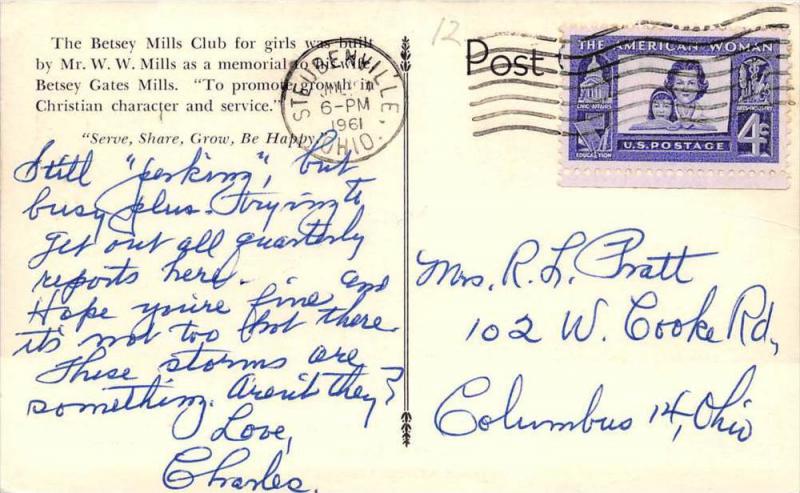 The Betsey Mills Club for girls was built
by Mr. W. W. Mills as a memorial to his wife
Betsey Gates Mills. "To promote growth in
Christian character and service."
"Serve, Share, Grow, Be Happy"
Still "perking", but
busy plus. Trying to
get out all quarterly
reports here. and
Hope you're fine
it's not too hot there
These storms are
something. Aren't they?
Love,
Charles.
12
Post
STEUBENVILLE,
OHIO.
6-PM
1961
THE AMERICAN WOMAN
CIVIC AFFAIRS
ARTS-INDUSTRY
EDUCATION
U.S. POSTAGE
4¢
Mrs. R. L. Pratt
102 W. Cooke Rd,
Columbus 14, Ohio